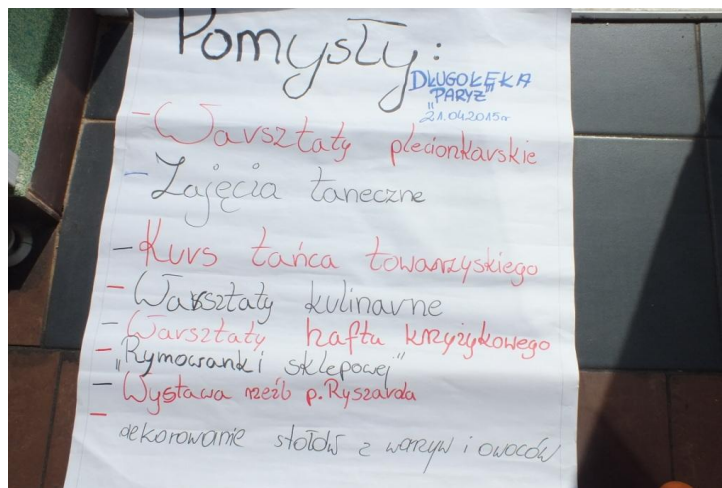 Pomysły:
DŁUGOŁĘKA
"PARYŻ"
21.04.2015r
- Warsztaty plecionkarskie
- Zajęcia taneczne
- Kurs tańca towarzyskiego
- Warsztaty kulinarne
- Warsztaty haftu krzyżykowego
- "Rymowanki sklepowej"
- Wystawa rzeźb p. Ryszarda
- dekorowanie stołów z warzyw i owoców